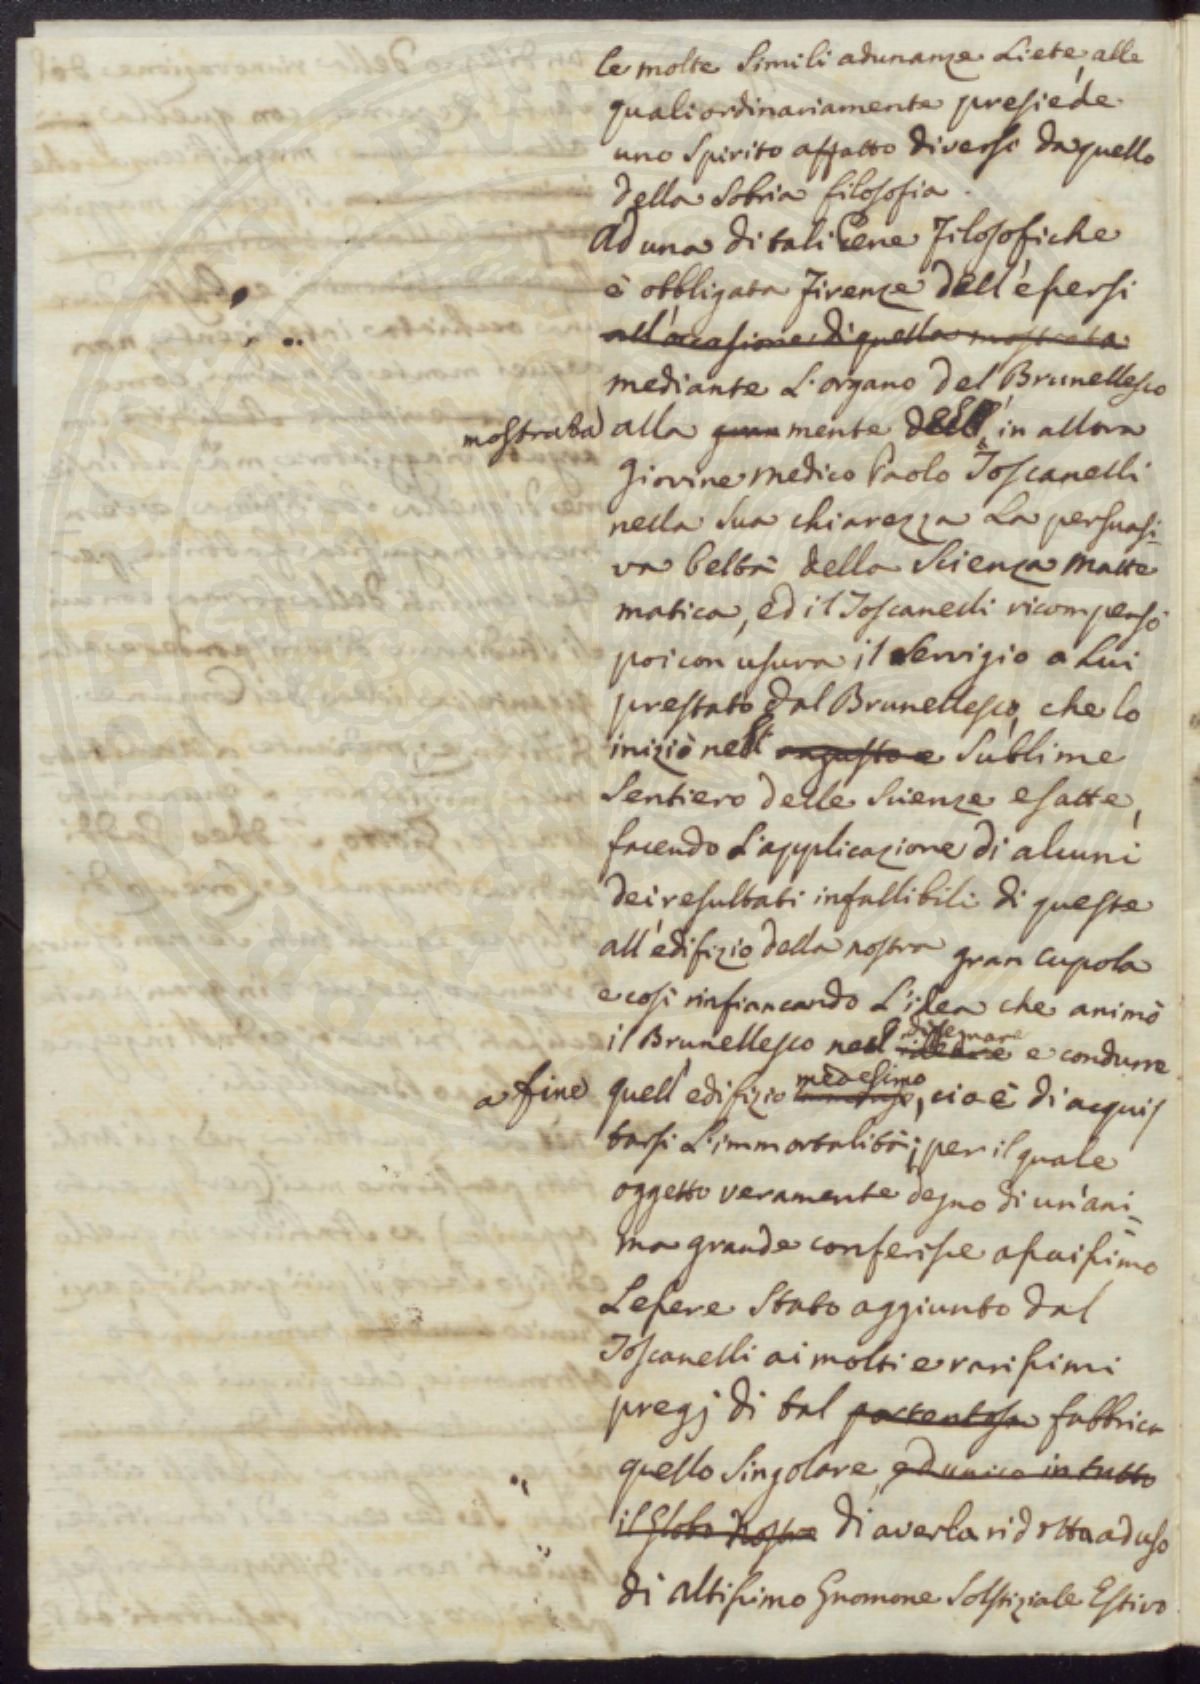 le molte Simili adunanze Liete, alle
quali ordinariamente presiede
uno Spirito affatto diverso da quello
della Sobria filosofia.
Ad una di tali Cene Filosofiche
è obbligata Firenze dell'essersi
all'occasione di quella mostrata
mediante L'organo del Brunellesco
mostrata alla gran mente dell', in allora
Giovine medico Paolo Toscanelli
nella Sua chiarezza La persuasi-
va beltà della Scienza Matte
matica, ed il Toscanelli ricompensò
poi con usura il Servigio a Lui
prestato dal Brunellesco, che lo
iniziò nell angusto e Sublime
Sentiero delle Scienze esatte,
facendo L'applicazione di alcuni
dei resultati infallibili di queste
all'edifizio della nostra gran Cupola
e così rinfiancando L'idea che animò
il Brunellesco nel disegnare e condurre
a fine quell'edifizio medesimo, cioè di acquis
tarsi L'immortalità; per il quale
oggetto veramente degno di un'ani-
ma grande conferisce assaissimo
L'essere Stato aggiunto dal
Toscanelli ai molti e rarissimi
pregj di tal portentosa fabbrica
quello Singolare, ed unico in tutto
il Globo Nostro di averla ridotta ad uso
di altissimo Gnomone Solstiziale Estivo